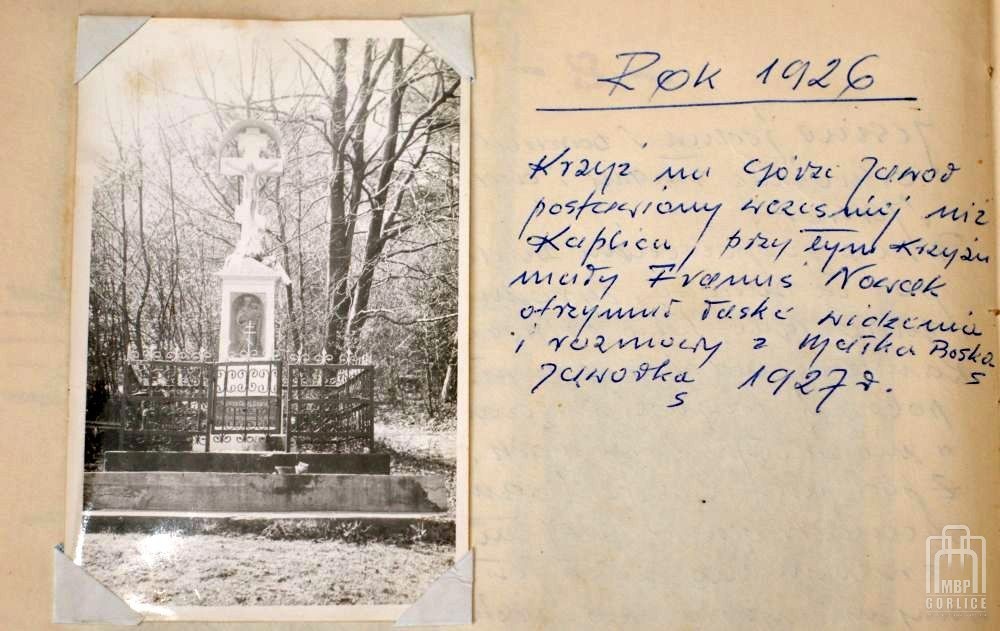 Rok 1926
Krzyż na Górze Jawod
postawiony wcześniej niż
Kaplica, przy tym Krzyżu
mały Franuś Nowak
otrzymał łaskę widzenia
i rozmowy z Matką Boską
Jawodką 1927 r.
MBP
GORLICE